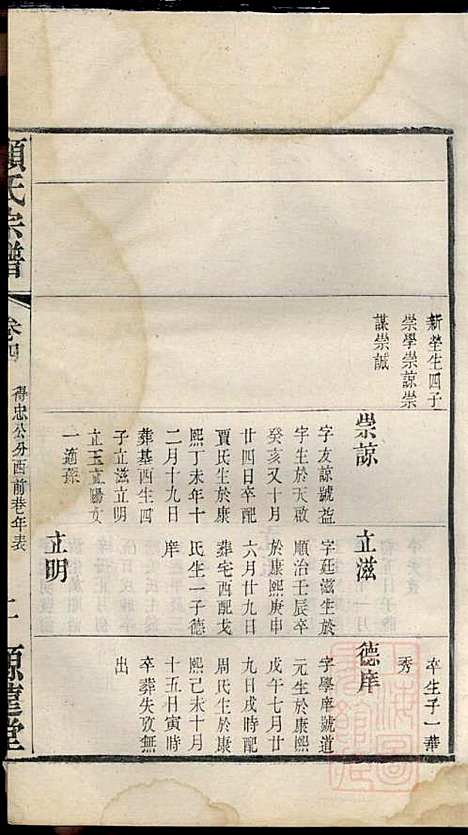 新塋生四子
崇學崇諒崇
謀崇誠
崇諒
字友諒號益
宇生於天啟
癸亥又十月
廿四日卒配
賈氏生於康
熙丁未年十
二月十九日
葬基西生四
子立滋立明
立玉立陽女
一適孫
立滋
字廷滋生於
順治壬辰卒
於康熙庚申
六月廿九日
葬宅西配戈
氏生一子德
庠
立明
卒生子一華
秀
德庠
字學庠號道
元生於康熙
戊午七月廿
九日戌時配
周氏生於康
熙己未十月
十五日寅時
卒葬失攷無
出
顧氏宗譜
卷四
得忠公分西前巷年表
源遠堂